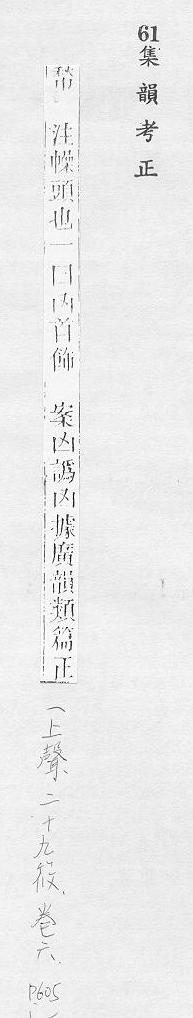 61集韻考正
注幧頭也一曰凶首飾 案凶譌凶據廣韻類篇正
(上聲、二十九筱、卷六、P605